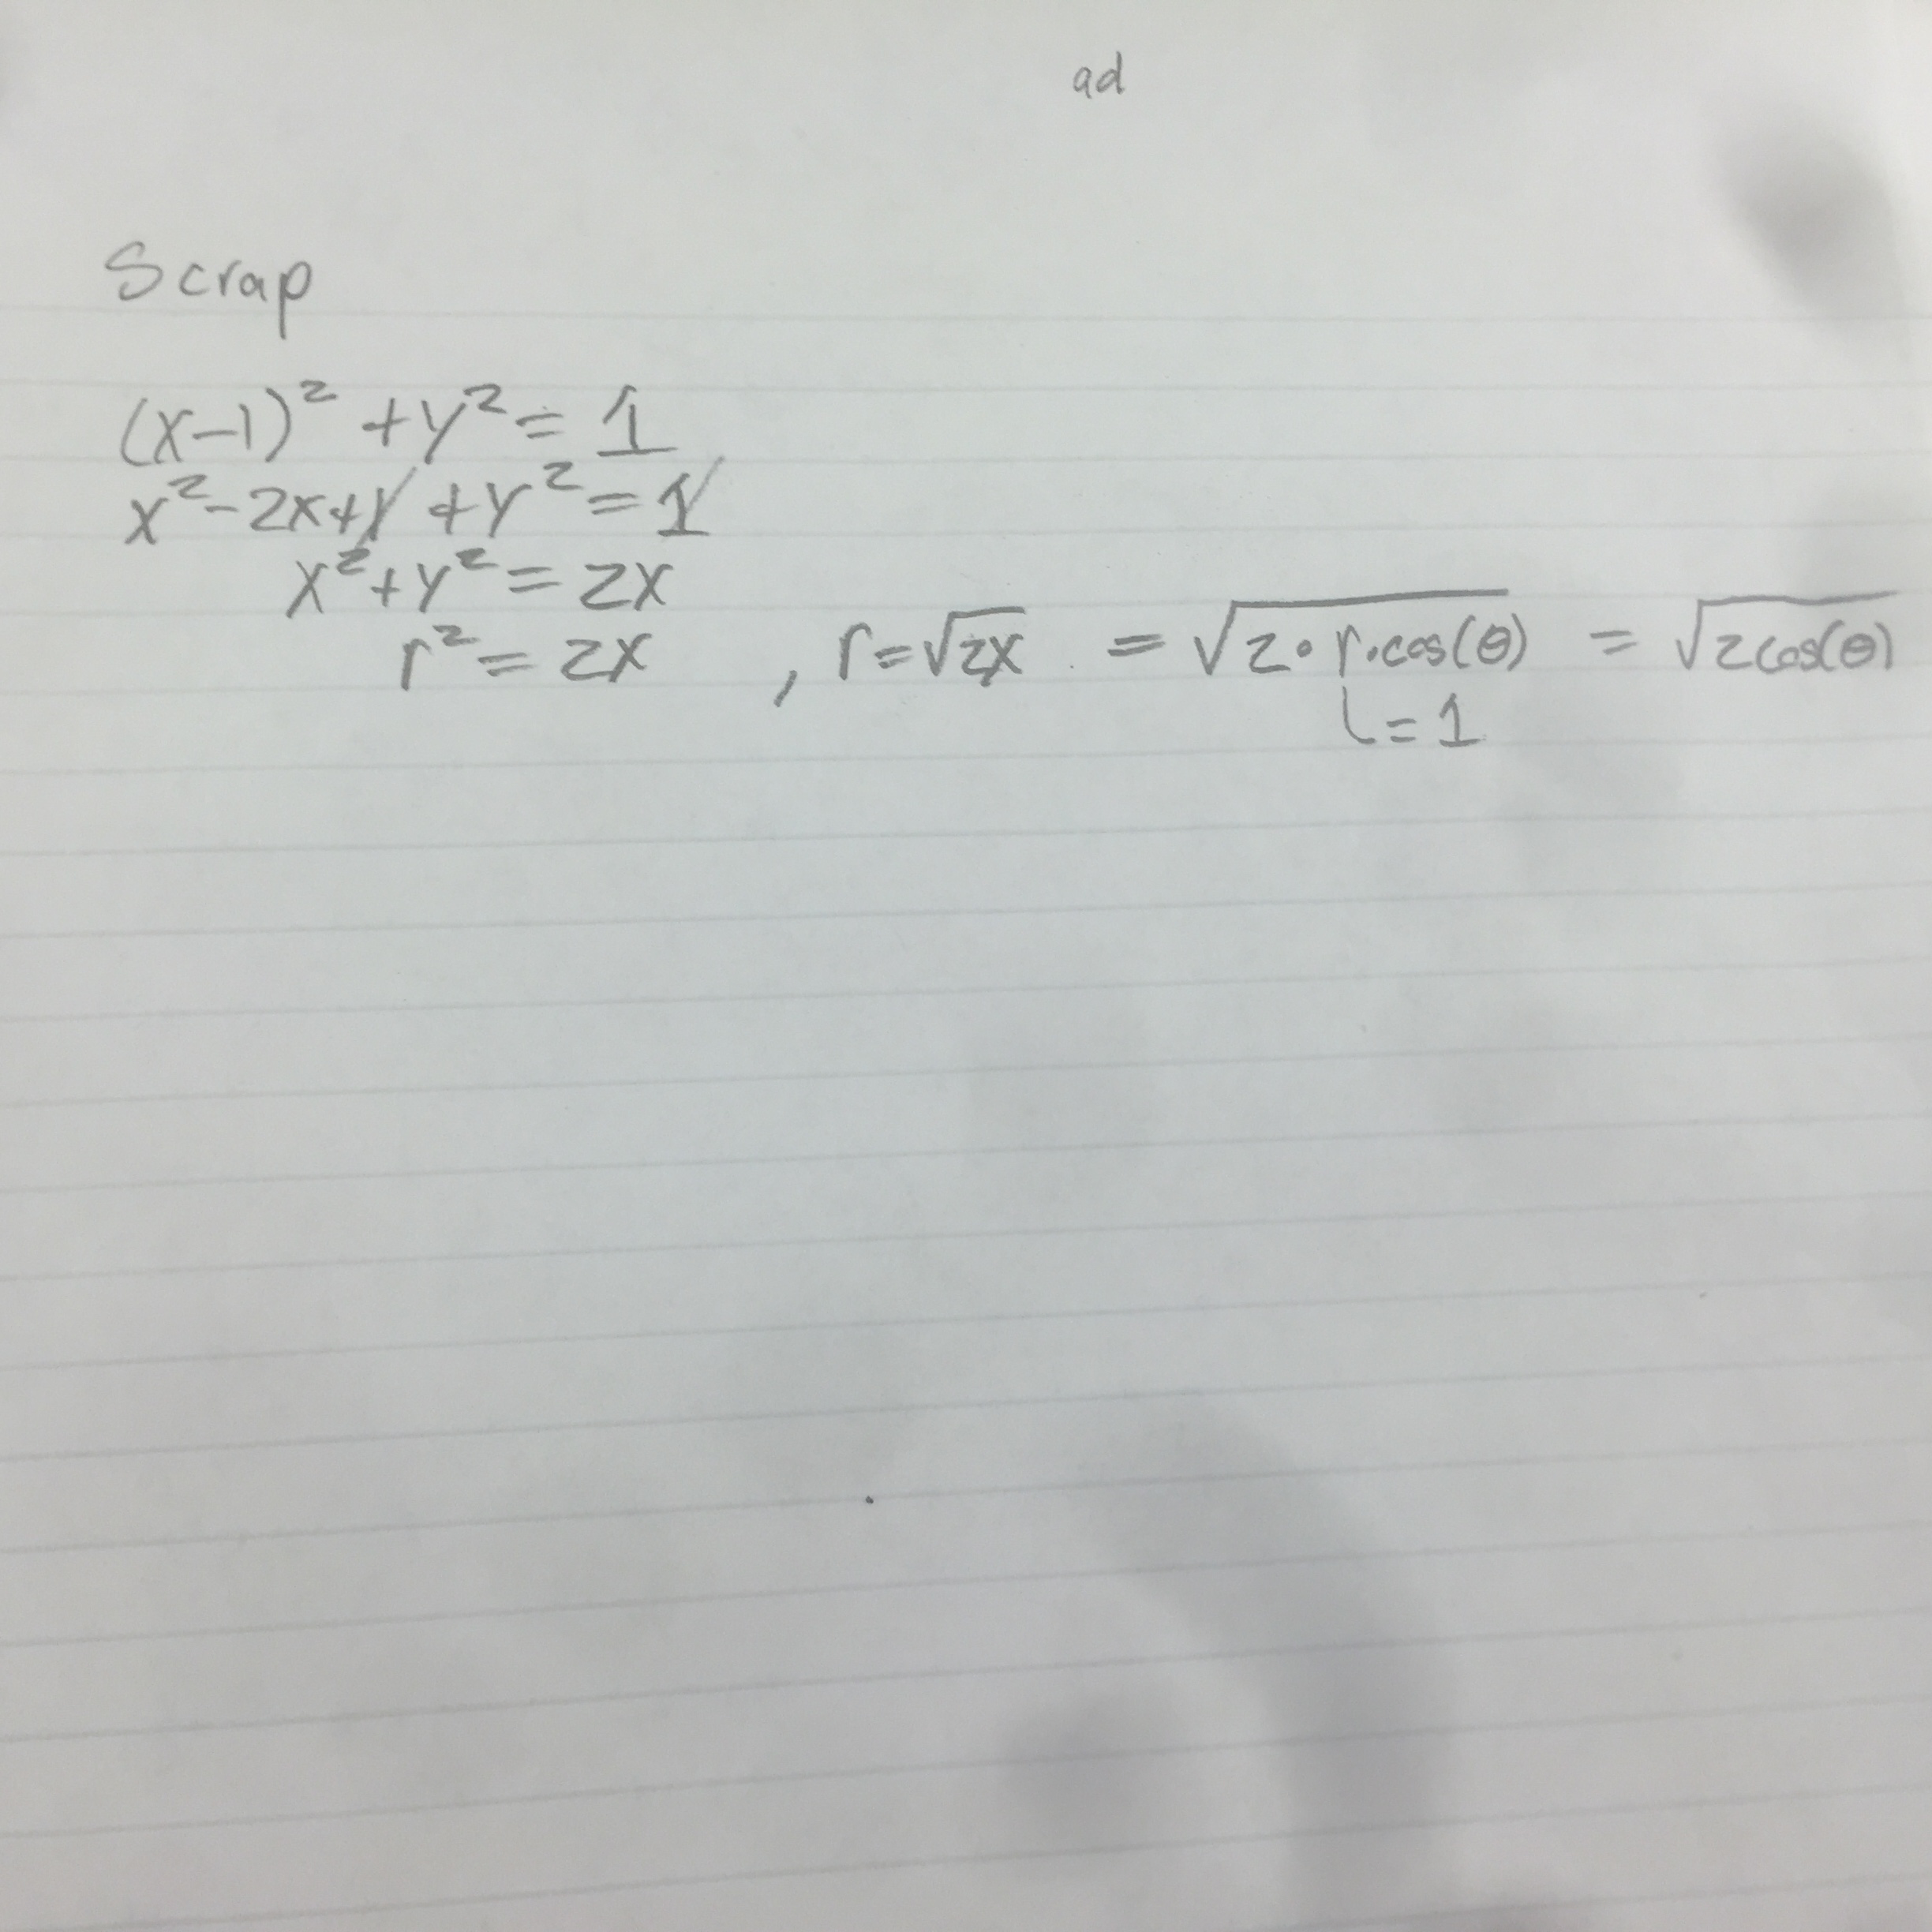 ad
Scrap
(x-1)² + y² = 1
x² - 2x + 1 + y² = 1
x² + y² = 2x
r² = 2x , r = √2x = √2·r·cos(θ) = √2cos(θ)
= 1